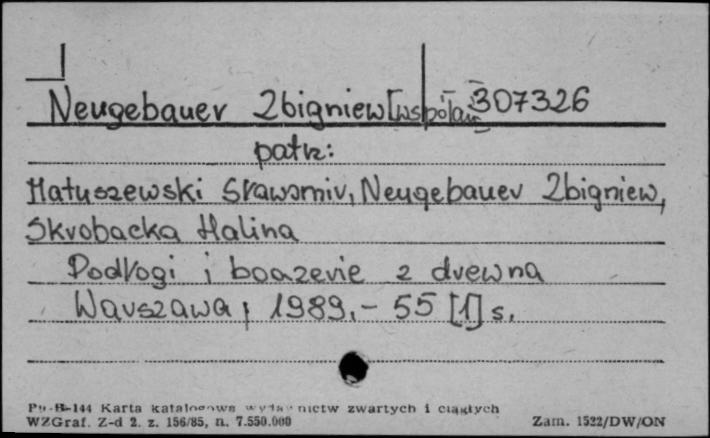 Neugebauer Zbigniew [współaut] 307326
patrz:
Matuszewski Sławomir, Neugebauer Zbigniew,
Skrobacka Halina
Podłogi i boazerie z drewna
Warszawa, 1989.- 55 [1] s.
Pu-B-144 Karta katalogowa wydawnictw zwartych i ciągłych
WZGraf. Z-d 2. z. 156/85, n. 7.550.000 Zam. 1522/DW/ON